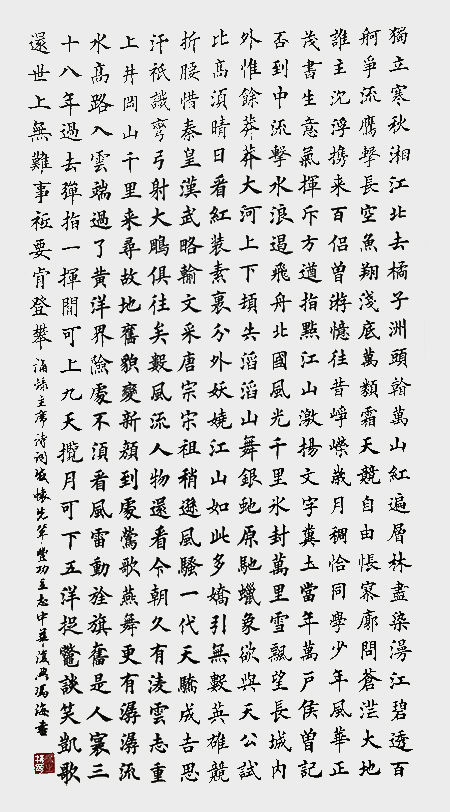 獨立寒秋湘江北去橘子洲頭萬山紅遍層林盡染漫江碧透百
舸爭流鷹擊長空魚翔淺底萬類霜天競自由悵寥廓問蒼茫大地
誰主沉浮携来百侣曾游憶往昔崢嶸歲月稠恰同學少年風華正
茂書生意氣揮斥方遒指點江山激揚文字糞土當年萬戶侯曾記
否到中流擊水浪遏飛舟北國風光千里冰封萬里雪飄望長城内
外惟餘莽莽大河上下頓失滔滔山舞銀蛇原馳蠟象欲與天公試
比高須晴日看紅装素裹分外妖嬈江山如此多嬌引無數英雄競
折腰惜秦皇漢武略輸文采唐宗宋祖稍遜風騷一代天驕成吉思
汗祇識彎弓射大鵰俱往矣數風流人物還看今朝久有凌雲志重
上井岡山千里来尋故地舊貌變新顔到處鶯歌燕舞更有潺潺流
水高路入雲端過了黄洋界險處不須看風雷動旌旗奮是人寰三
十八年過去彈指一揮間可上九天攬月可下五洋捉鱉談笑凱歌
還世上無難事祇要肯登攀
主席诗词懷先輩豐功立志中華復興馮海書